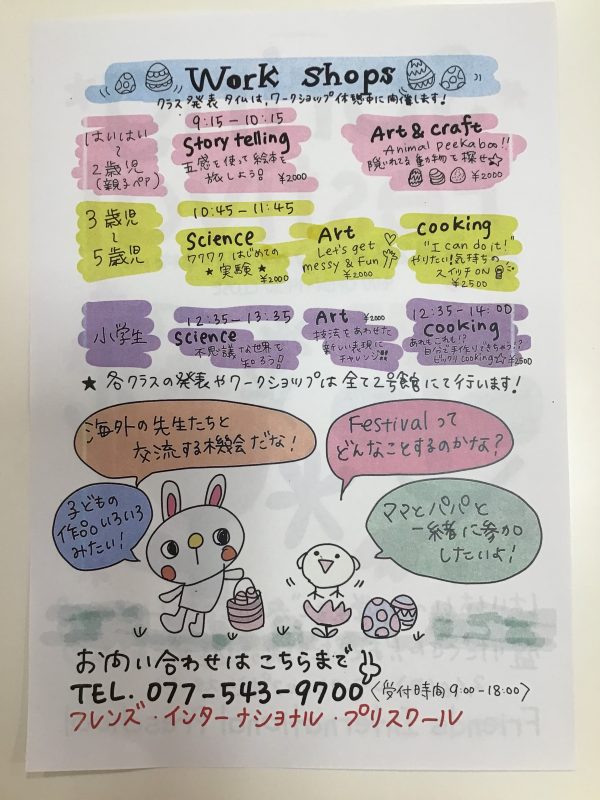 Work Shops
クラス発表タイムは、ワークショップ休憩中に開催します!
はいはい
〜
2歳児
(親子ペア)
9:15-10:15
Story telling
五感を使って絵本を
旅しよう!
¥2000
Art & craft
Animal peekaboo!!
隠れてる動物を探せ☆
¥2000
3歳児
〜
5歳児
10:45-11:45
Science
ワクワク はじめての
★実験★
¥2000
Art
Let's get
messy & fun
¥2000
cooking
"I can do it!"
やりたい!気持ちの
スイッチON
¥2500
小学生
12:35-13:35
Science
不思議な世界を
知ろう!
Art ¥2000
技法をあわせた
新しい表現に
チャレンジ!!
12:35-14:00
Cooking
あれもこれも!?
自分で手作りできちゃう!?
ビックリcooking☆ ¥2500
★各クラスの発表やワークショップは全て2号館にて行います!
海外の先生たちと
交流する機会だな!
Festivalって
どんなことするのかな?
子どもの
作品いろいろ
みたい!
ママとパパと
一緒に参加
したいよ!
お問い合わせは こちらまで
TEL. 077-543-9700 〈受付時間 9:00-18:00〉
フレンズ・インターナショナル・プリスクール